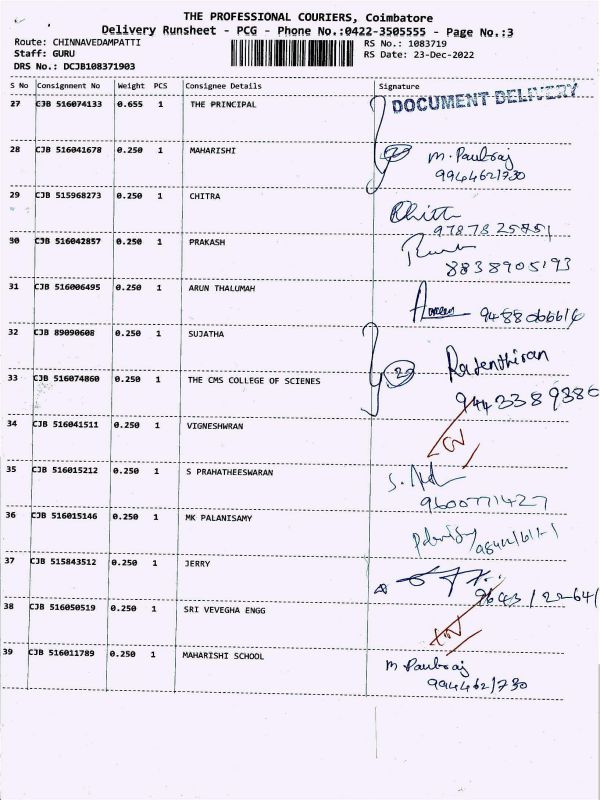 THE PROFESSIONAL COURIERS, Coimbatore
Delivery Runsheet - PCG - Phone No.:0422-3505555 - Page No.:3
Route: CHINNAVEDAMPATTI RS No.: 1083719
Staff: GURU RS Date: 23-Dec-2022
DRS No.: DCJB108371903
S No Consignment No Weight PCS Consignee Details Signature
27 CJB 516074133 0.655 1 THE PRINCIPAL DOCUMENT DELIVERY
28 CJB 516041678 0.250 1 MAHARISHI M. Paulraj
9944621730
29 CJB 515968273 0.250 1 CHITRA
30 CJB 516042857 0.250 1 PRAKASH
8838905193
31 CJB 516006495 0.250 1 ARUN THALUMAH
32 CJB 89090608 0.250 1 SUJATHA Rajenthiran
33 CJB 516074860 0.250 1 THE CMS COLLEGE OF SCIENES
9443389386
34 CJB 516041511 0.250 1 VIGNESHWRAN
35 CJB 516015212 0.250 1 S PRAHATHEESWARAN
9600771427
36 CJB 516015146 0.250 1 MK PALANISAMY
37 CJB 515843512 0.250 1 JERRY
38 CJB 516050519 0.250 1 SRI VEVEGHA ENGG
39 CJB 516011789 0.250 1 MAHARISHI SCHOOL M Paulraj
9944621730